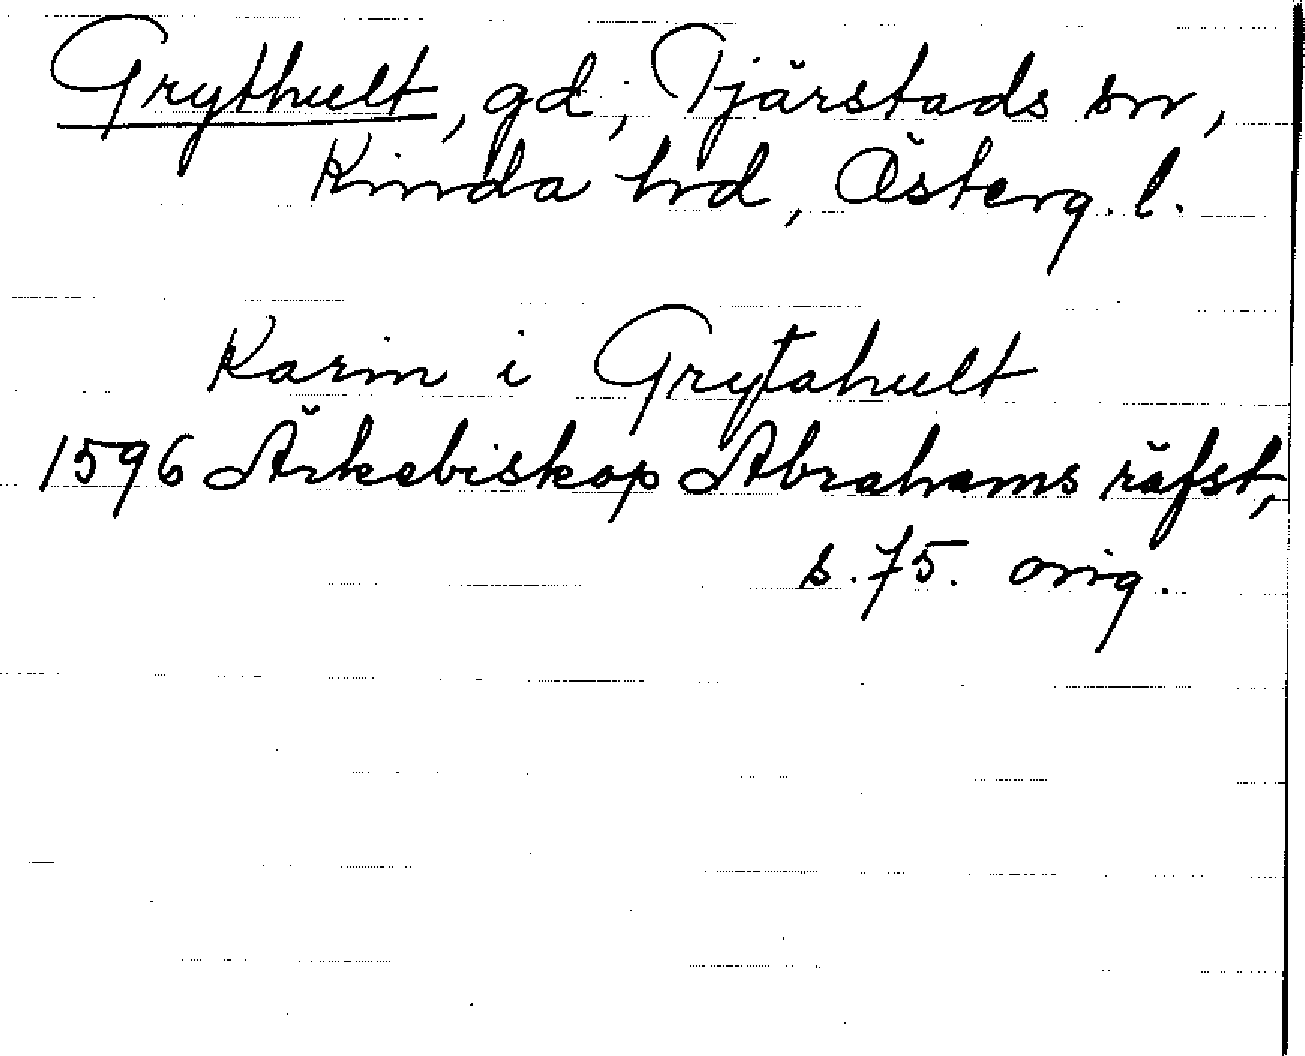 Grythult, gd, Tjärstads sn,
Kinda hd, Österg. l.
Karin i Grytahult
1596 Ärkebiskop Abrahams räfst,
s. 75. orig.